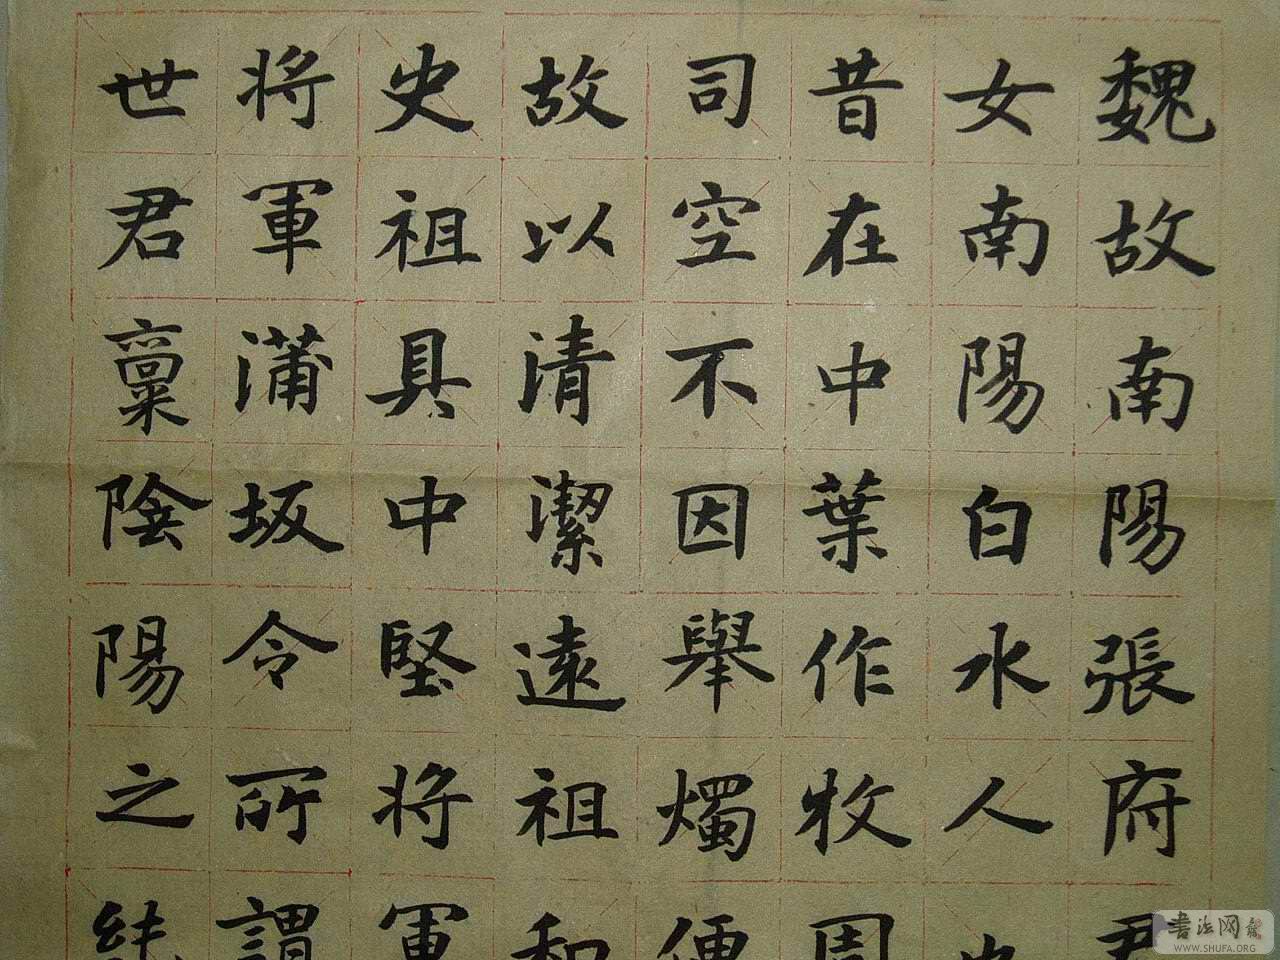 魏故南陽張府君
女南陽白水人也
昔在中葉作牧周
司空不因舉燭便
故以清潔遠祖和
史祖具中堅將軍
將軍蒲坂令所謂
世君稟陰陽之純
书法网
WWW.SHUFA.ORG